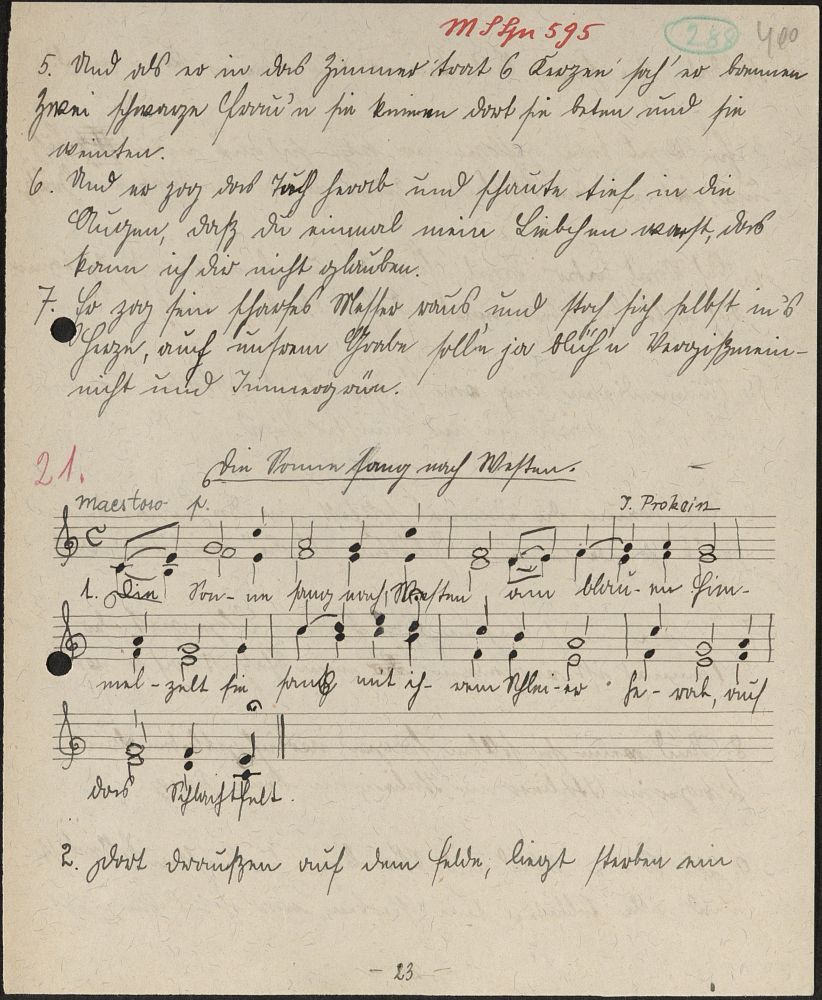 MSgn 595 288 400
5. Und als er in das Zimmer trat 6 Kerzen sah' er brennen
Zwei schwarze Frau'n sie knieen dort sie beten und sie
weinten.
6. Und er zog das Tuch herab und schaute tief in die
Augen, daß du einmal mein Liebchen warst, das
kann ich dir nicht glauben.
7. Er zog sein scharfes Messer raus und stach sich selbst in's
Herze, auf unsrem Grabe soll'n ja blüh'n Vergißmein-
nicht und Immergrün.
21. Die Sonne sang nach Westen.
Maestoso p. J. Prokein
1. Die Son- ne sang nach Westen am blau- en Him-
mel- zelt sie sank mit ih- rem Schlei- er he- rab, auf
das Schlachtfelt.
2. Dort draußen auf dem Felde, liegt sterben ein
- 23 -